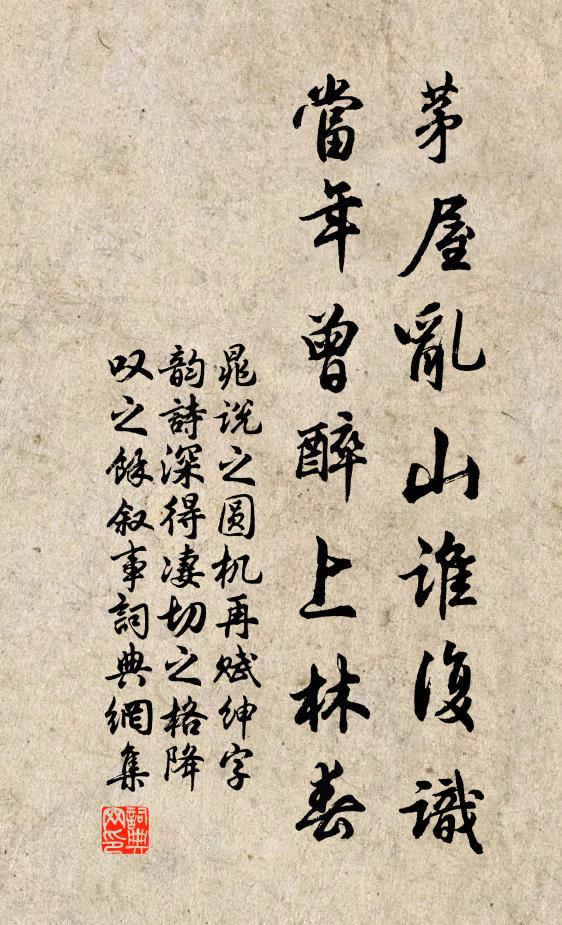 茅屋亂山誰復識
當年曾醉上林春
晁说之圆机再赋绅字
韵詩深得凄切之格降
叹之餘叙事詞典網集
詞典
网印